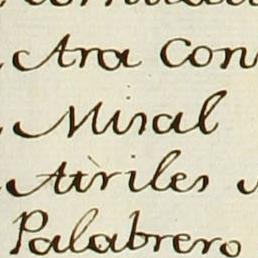 Ara Con
Misal
Atriles
Palabrero